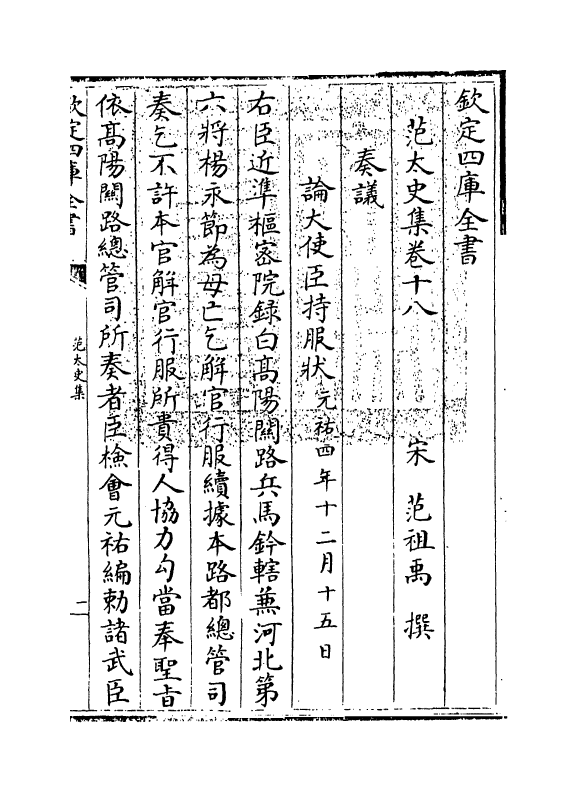 欽定四庫全書
范太史集卷十八　　宋　范祖禹　撰
奏議
論大使臣持服狀元祐四年十二月十五日
右臣近準樞宻院録白髙陽闗路兵馬鈐轄兼河北第
六將楊永節為母亡乞解官行服續據本路都總管司
奏乞不許本官解官行服所貴得人協力勾當奉聖㫖
依髙陽闗路總管司所奏者臣檢會元祐編勅諸武臣
欽定四庫全書
范太史集